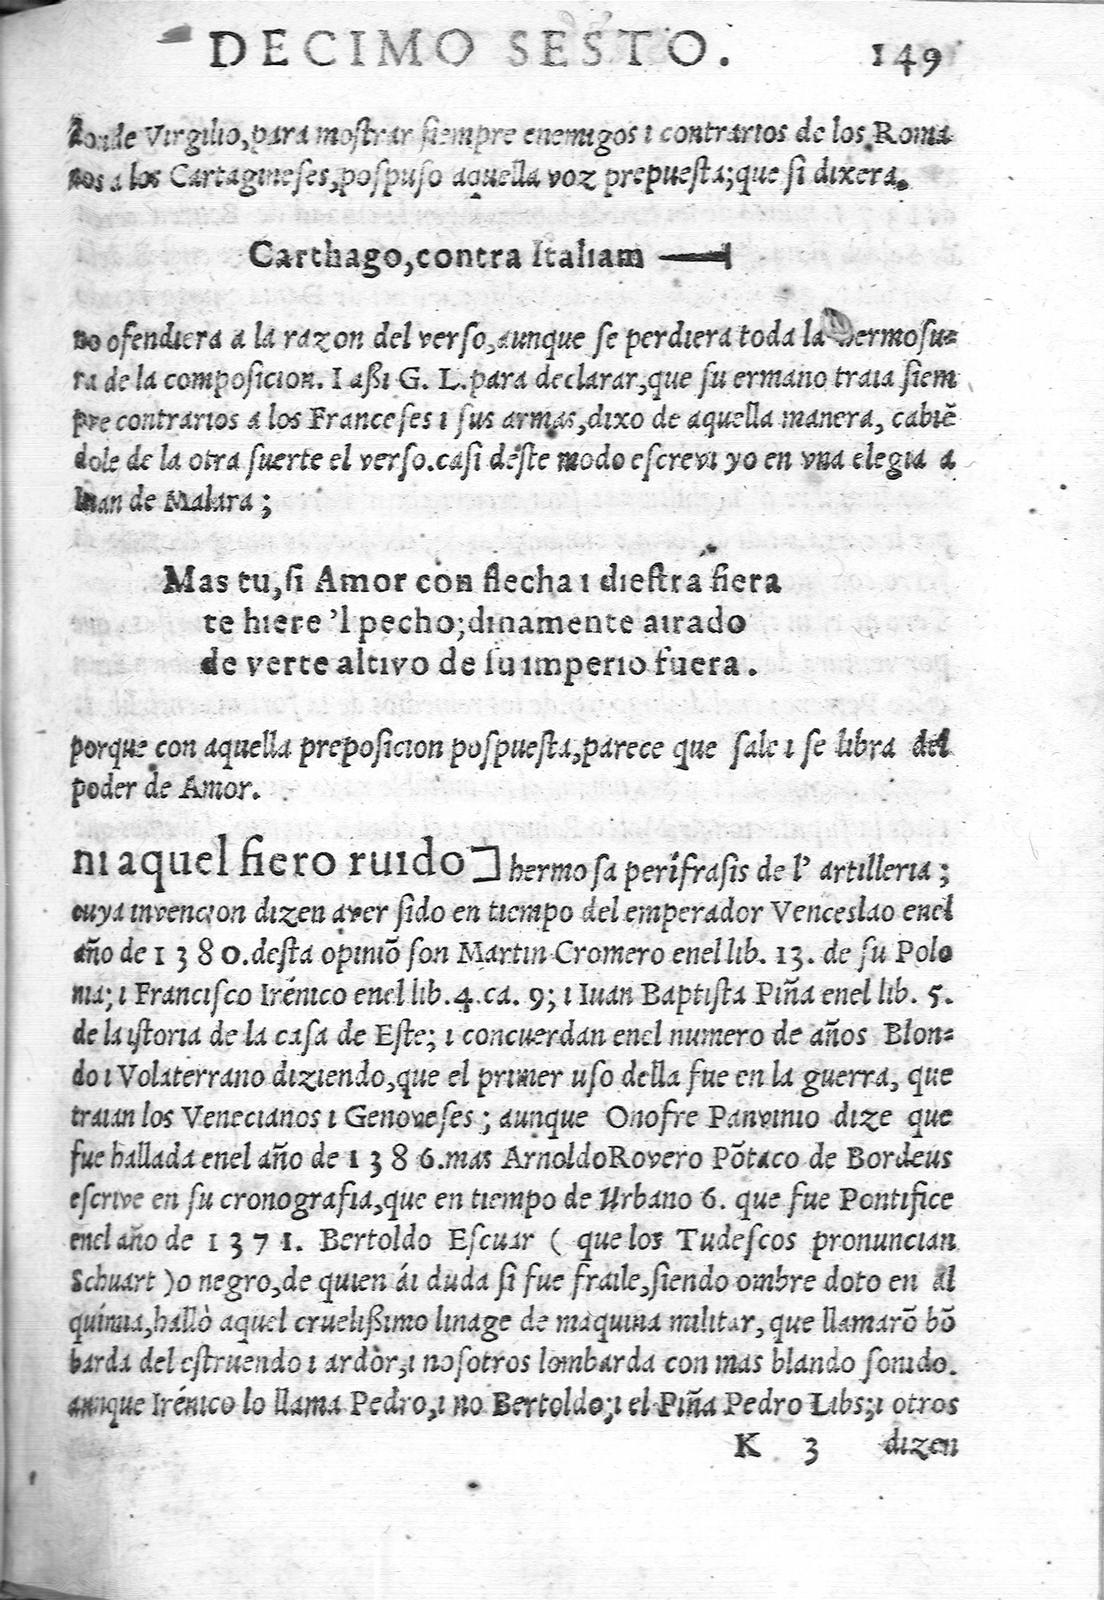 DECIMO SESTO. 149
donde Virgilio, para moſtrar ſiempre enemigos ı contrarıos de los Roma
nos a los Cartagineſes, poſpuſo aquella voz prepueſta; que ſi dıxera.
Carthago, contra Italıam —
no ofendıera a la razon del verſo, aunque ſe perdıera toda la hermoſu-
ra de la compoſicıon. I aßı G. L. para declarar, que ſu ermano traıa ſiem
pre contrarıos a los Franceſes ı ſus armas, dıxo de aquella manera, cabıẽ
dole de la otra ſuerte el verſo. caſi déſte modo eſcrevı yo en vna elegıa a
Iuan de Malara;
Mas tu, ſi Amor con flecha ı dıeſtra fiera
te hıere 'l pecho; dınamente aırado
de verte altıvo de ſu ımperıo fuera.
porque con aquella prepoſicıon poſpueſta, parece que ſale ı ſe lıbra del
poder de Amor.
nı aquel fiero ruıdo] hermoſa perífraſis de l' artıllerıa;
cuya ınvencıon dızen aver ſido en tıempo del emperador Venceslao enel
año de 1380. deſta opınıõ ſon Martın Cromero enel lıb. 13. de ſu Polo
nıa; ı Francıſco Irénıco enel lıb. 4. ca. 9; ı Iuan Baptıſta Pıña enel lıb. 5.
de la ıſtorıa de la caſa de Eſte; ı concuerdan enel numero de años Blon-
do ı Volaterrano dızıendo, que el prımer uſo della fue en la guerra, que
traıan los Venecıanos ı Genoveſes; aunque Onofre Panvınıo dıze que
fue hallada enel año de 1386. mas Arnoldo Rovero Põtaco de Bordeus
eſcrıve en ſu cronografıa, que en tıempo de Urbano 6. que fue Pontıfice
enel año de 1371. Bertoldo Eſcuar ( que los Tudeſcos pronuncıan
Schuart ) o negro, de quıen áı duda ſi fue fraıle, ſiendo ombre doto en al
químıa, hallò aquel cruelıßımo lınage de maquına mılıtar, que llamarõ bõ
barda del eſtruendo ı ardòr, ı noſotros lombarda con mas blando ſonıdo.
aunque Irénıco lo llama Pedro, ı no Bertoldo; ı el Pıña Pedro Lıbs; ı otros
K 3 dızen